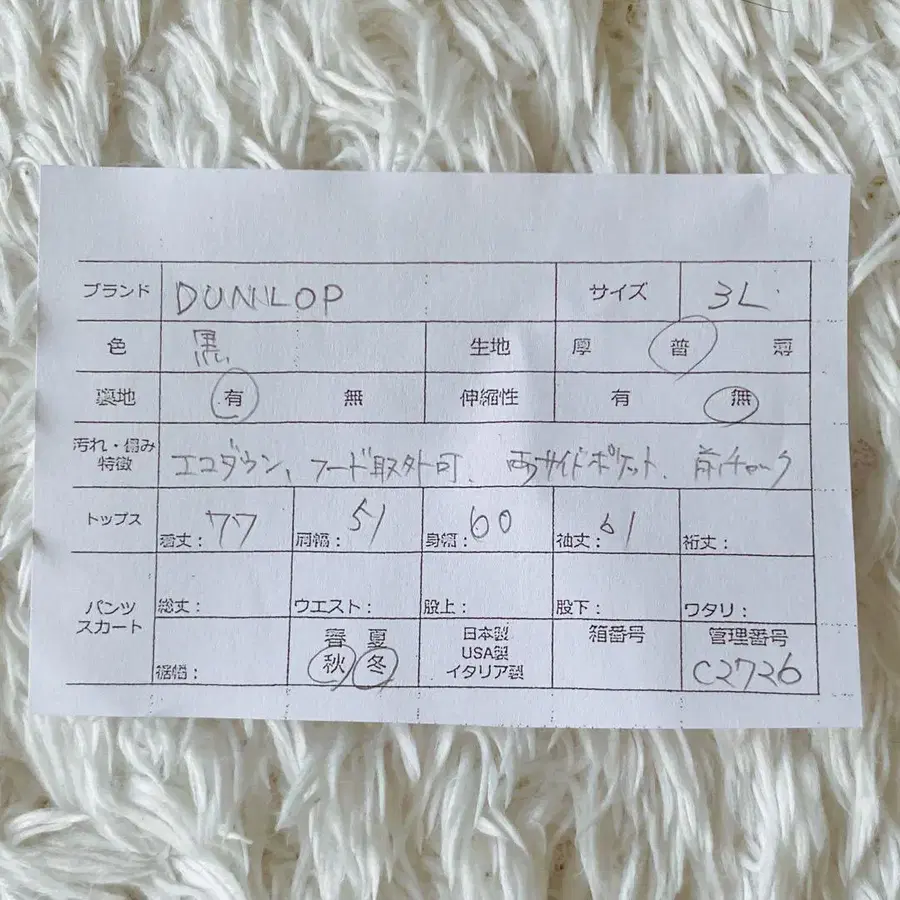 ブランド DUNLOP サイズ 3L
色 黒 生地 厚 普 薄
裏地 有 無 伸縮性 有 無
汚れ・傷み
特徴 エコダウン、フード取外可、両サイドポケット、前チャック
トップス 着丈：77 肩幅：51 身幅：60 袖丈：61 裄丈：
パンツ
スカート 総丈： ウエスト： 股上： 股下： ワタリ：
裾幅： 春 夏 日本製 箱番号 管理番号
秋 冬 USA製 C2726
イタリア製